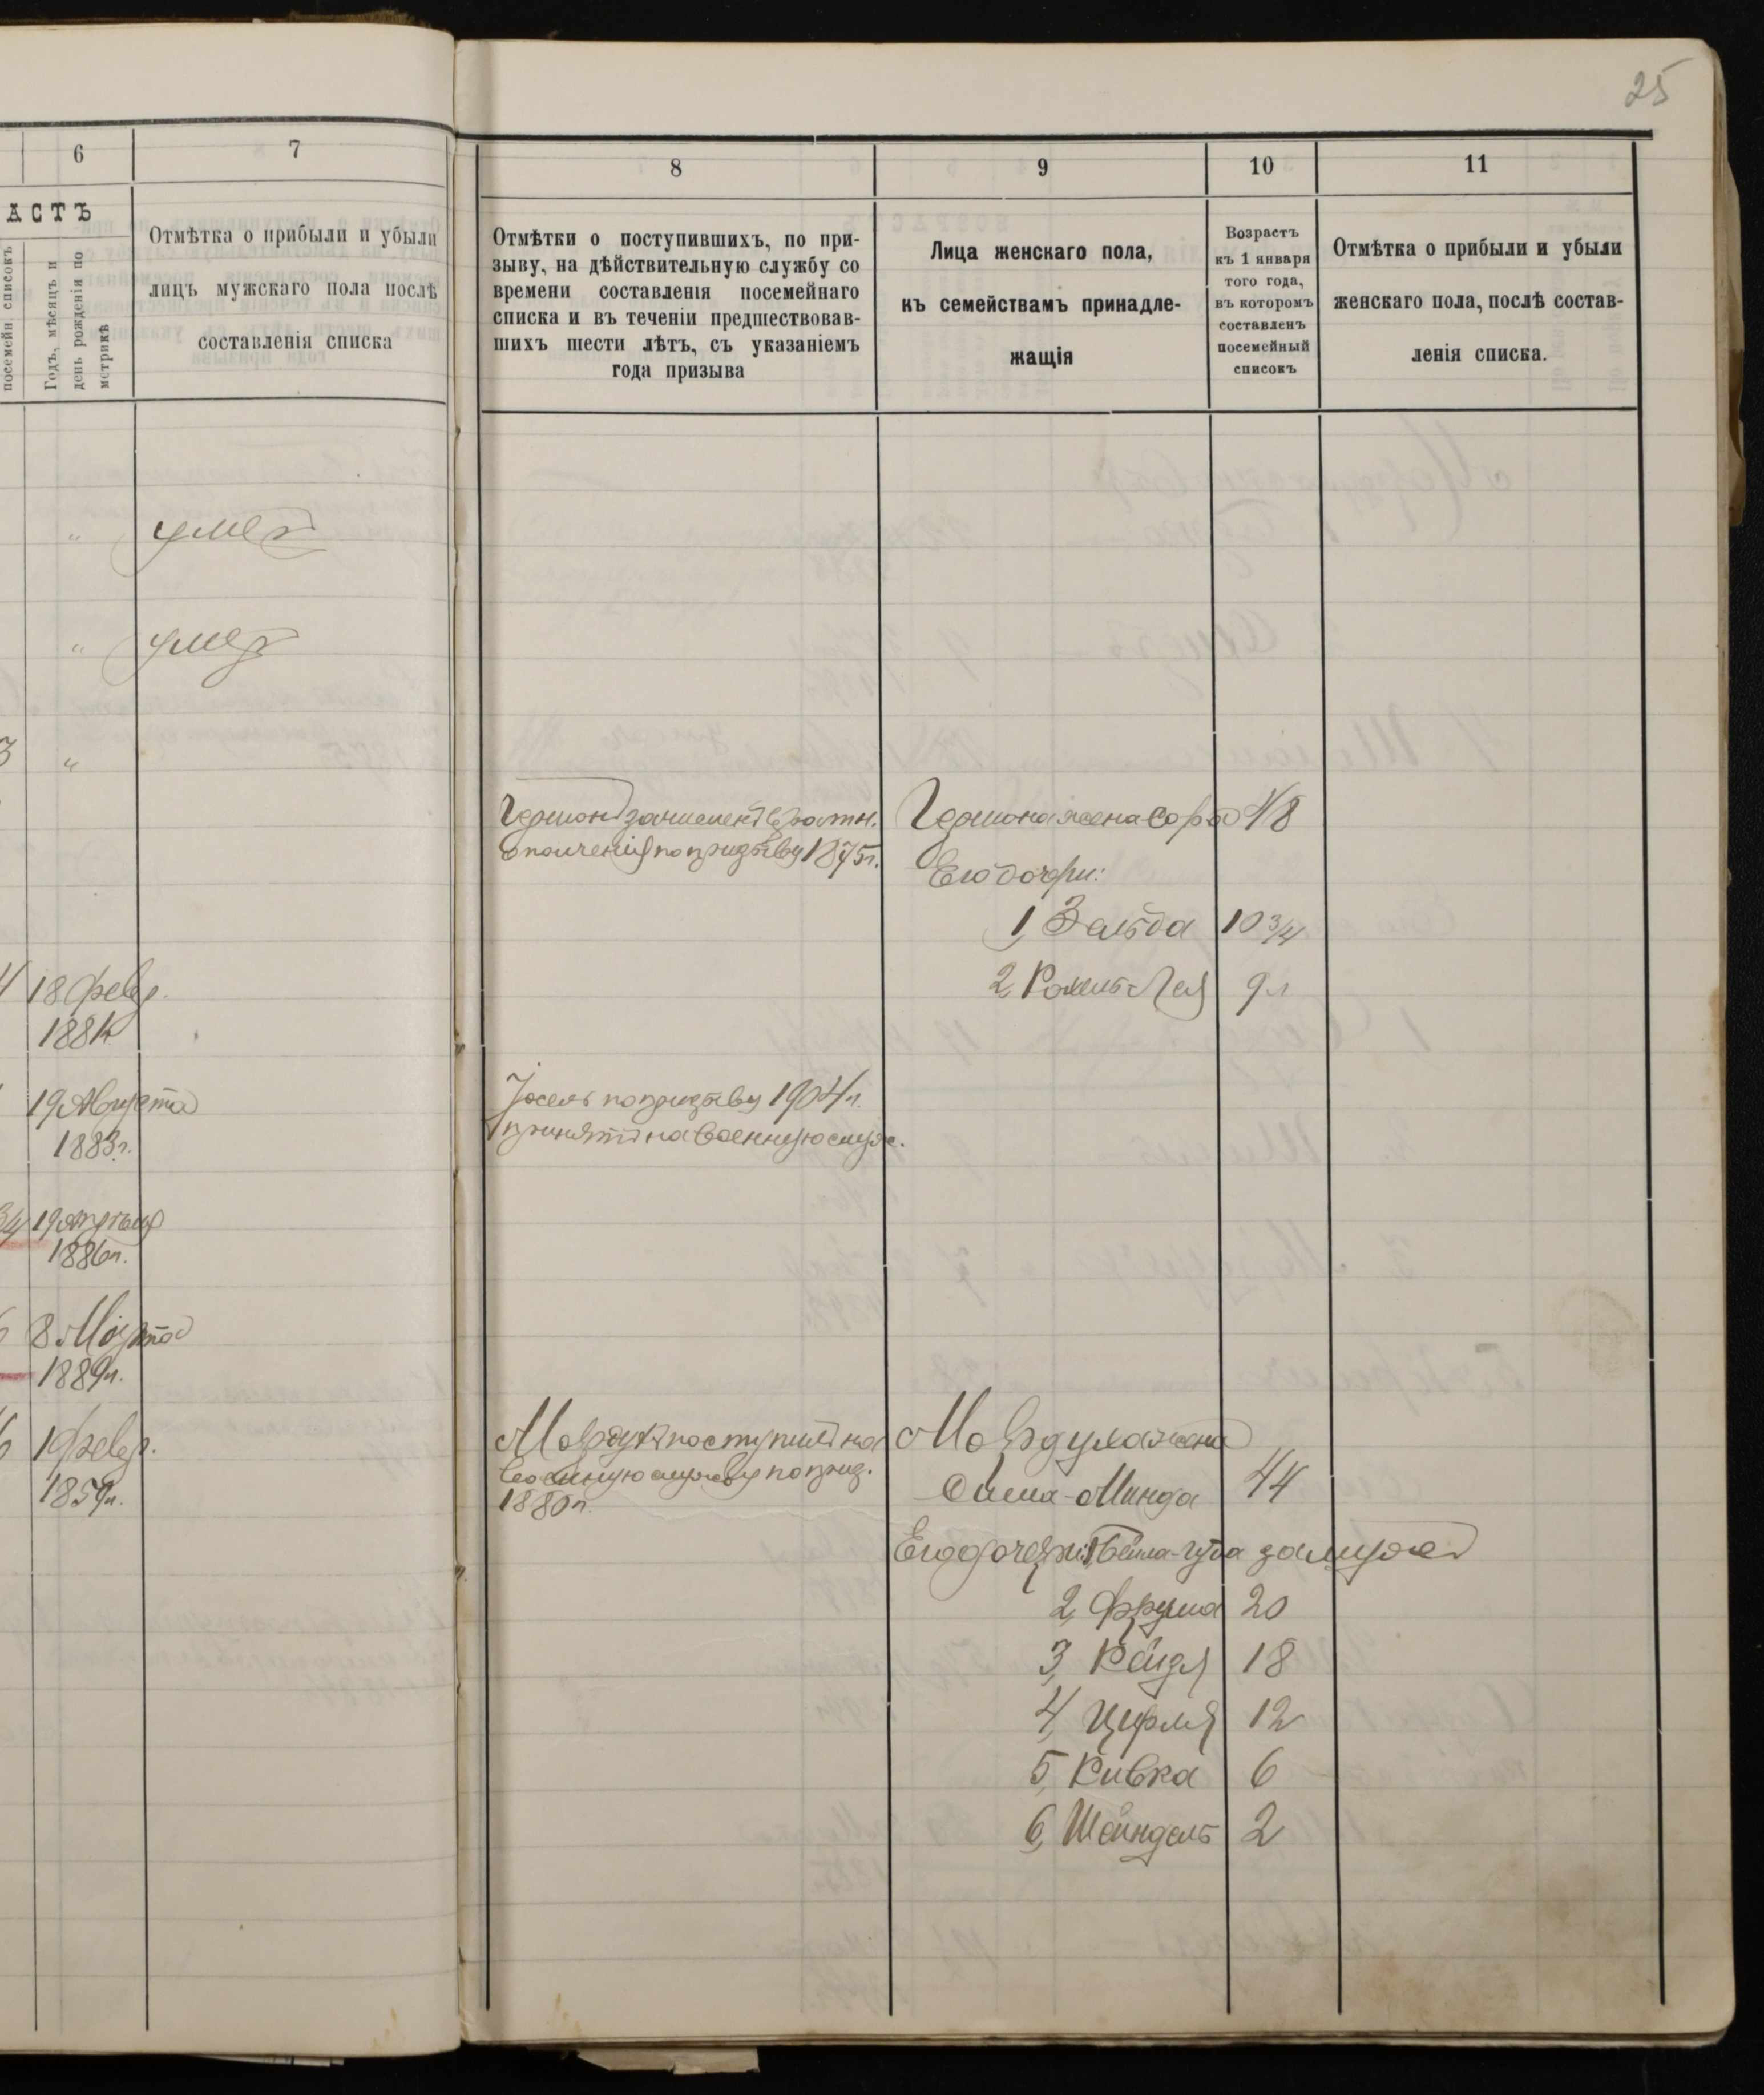 25
6
7
АСТЪ
посемейн списокъ
Годъ, мѣсяцъ и
день рожденія по
метрикѣ
Отмѣтка о прибыли и убыли
лицъ мужскаго пола послѣ
составленія списка
„ умер
„ умер
3 „
4 18 февр.
1881г.
19 Августа
1883г.
3/4 19 Апрѣля
1886г.
8 Марта
1889г.
1 февр.
1859г.
8
9
10
11
Отмѣтки о поступившихъ, по при-
зыву, на дѣйствительную службу со
времени составленія посемейнаго
списка и въ теченіи предшествовав-
шихъ шести лѣтъ, съ указаніемъ
года призыва
Лица женскаго пола,
къ семействамъ принадле-
жащія
Возрастъ
къ 1 января
того года,
въ которомъ
составленъ
посемейный
списокъ
Отмѣтка о прибыли и убыли
женскаго пола, послѣ состав-
ленія списка.
Гершон зачислен в ратн.
ополченія по призыву 1875г.
Гершона жена Сора 48
Его дочери:
1, Зельда 10 3/4
2, Рохель-Лея 9 л
Іосель по призыву 1904г.
принятъ на военную служ.
Мордух поступил на
военную службу по приз.
1880г.
Мордуха жена
-Минда 44
Его дочери: 1 Бейла-Гута замужем
2, Фрума 20
3, Рейзя 18
4, Цирля 12
5, Ривка 6
6, Шейндель 2